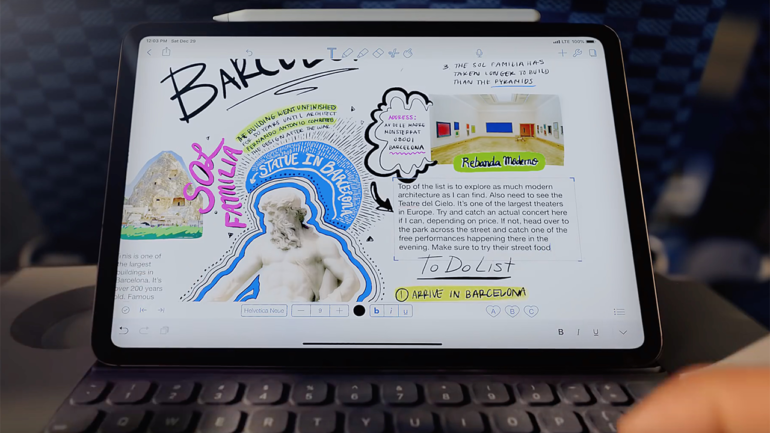 12:03 PM Sat Dec
LTE 100%
T
3 THE SOL FAMILIA HAS
TAKEN LONGER TO BUILD
THAN THE PYRAMIDS
BUILDING WENT UNFINISHED
YEARS UNTIL ARCHITECT
FERNANDO ANTONIO COMPLETED
THE DESIGN AFTER THE WAR
SOL
FAMILIA
STATUE IN BARCELONA
ADDRESS:
MONTSERRAT
08001
BARCELONA
Rebanda Moderno
Top of the list is to explore as much modern
architecture as I can find. Also need to see the
Teatre del Cielo. It's one of the largest theaters
in Europe. Try and catch an actual concert here
if I can, depending on price. If not, head over to
the park across the street and catch one of the
free performances happening there in the
evening. Make sure to try their street food
his is one of
he largest
uildings in
Barcelona. It's
ver 200 years
ld. Famous
TO DO LIST
1 ARRIVE IN BARCELONA
Helvetica Neue
— 9 +
b i u
A B C
B I U
1 2 3 4 5 6 7 8 9 0
Q W E R T Y U I O P